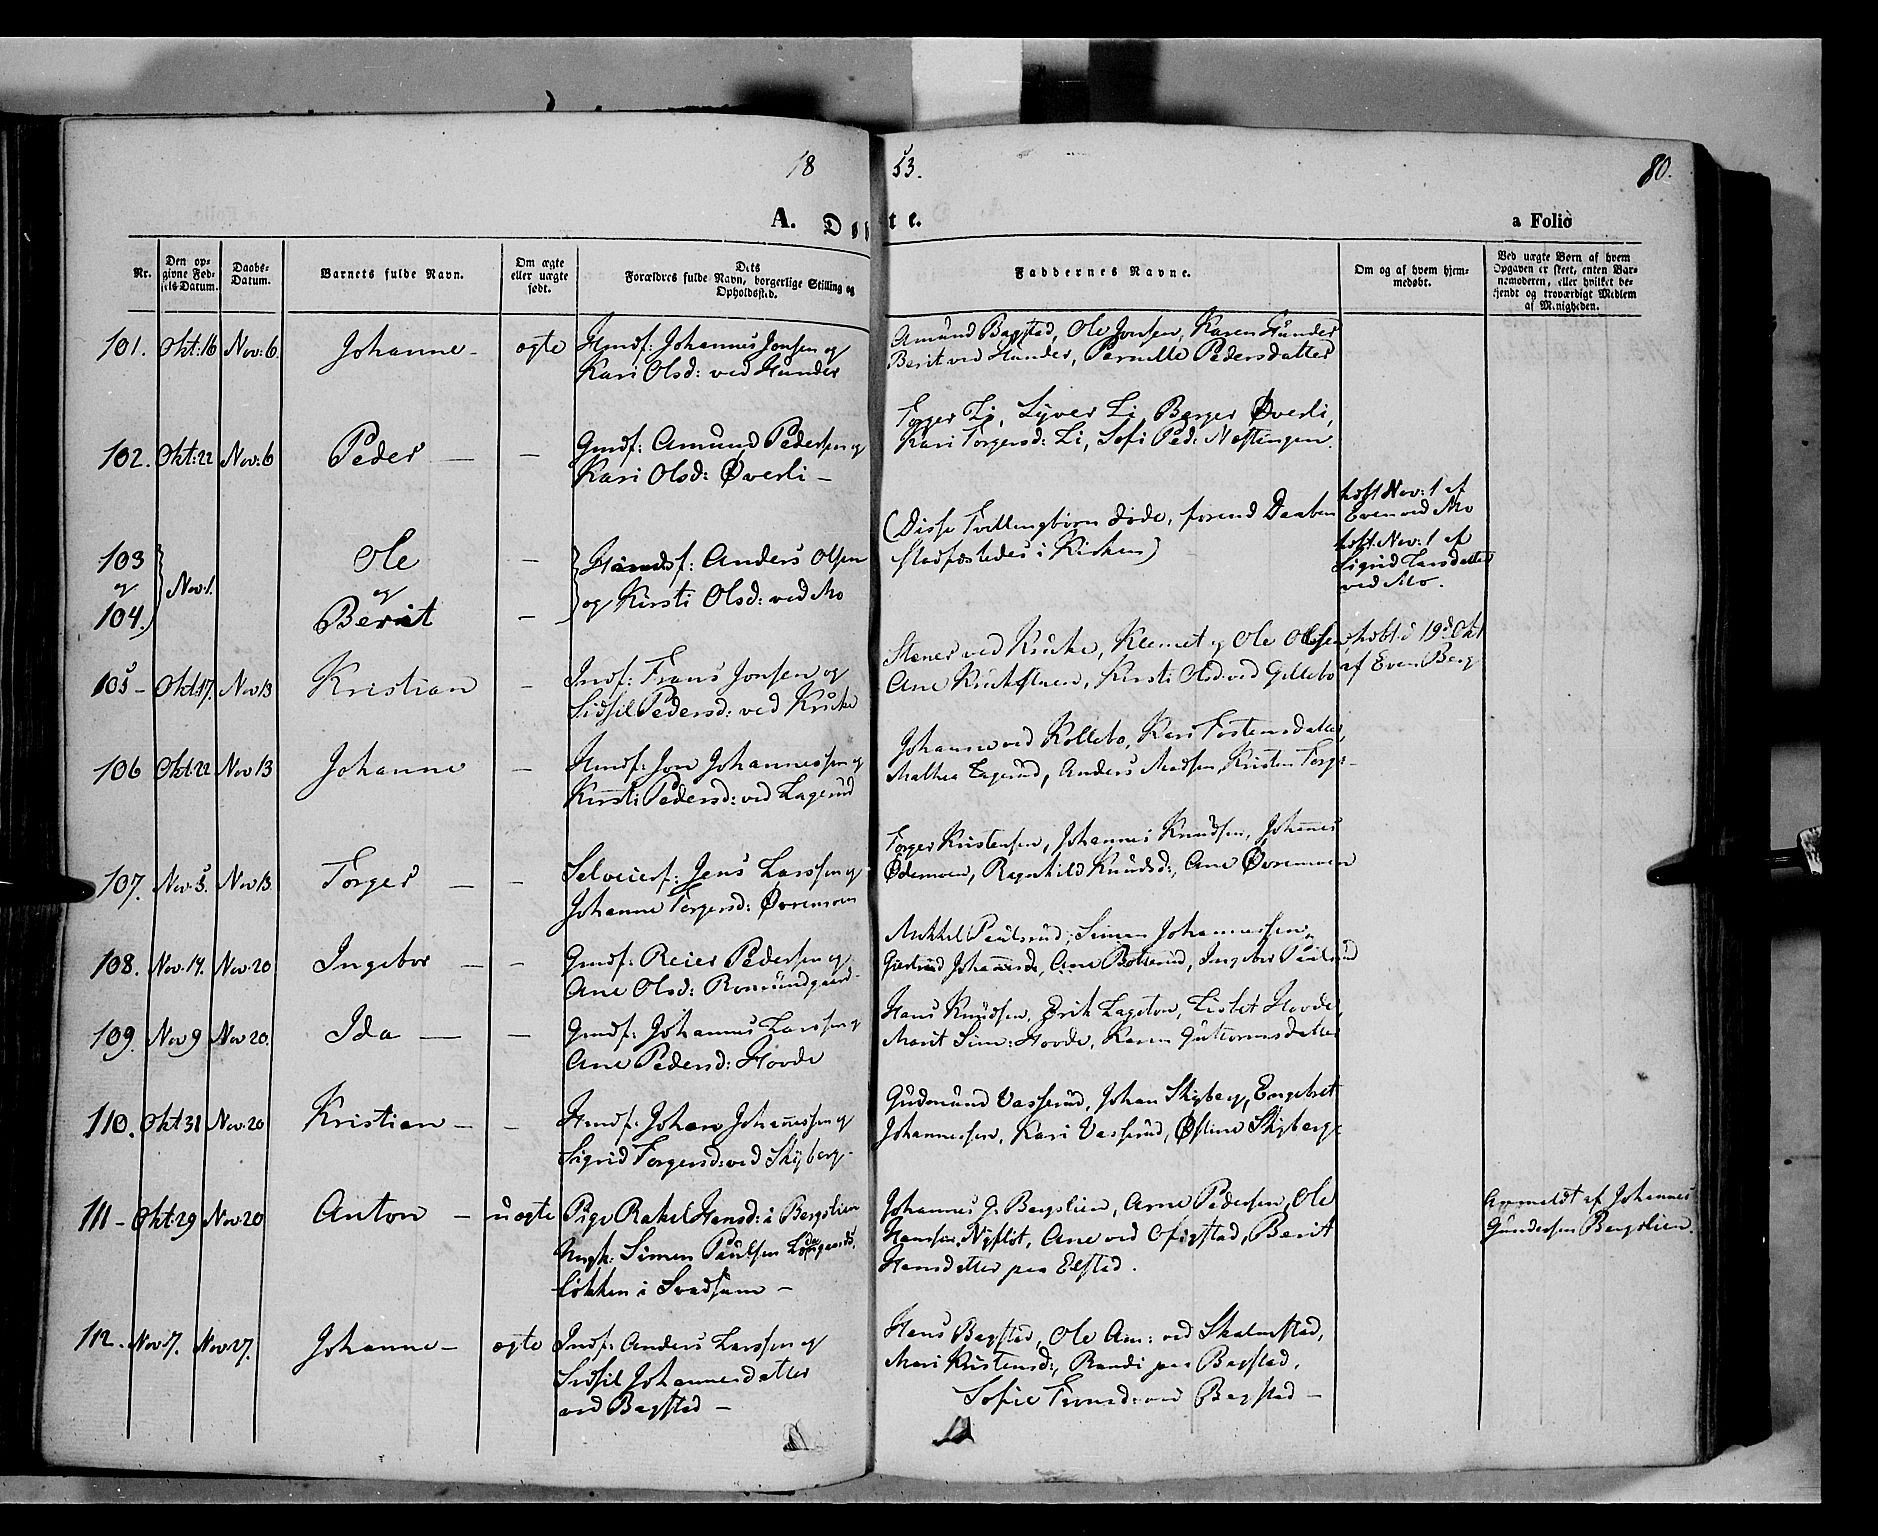 18 53. 80.
A. Døbte. a Folio
Nr. Den opgivne Fødsels-Datum. Daabs-Datum. Barnets fulde Navn. Om ægte eller uægte født. Dets Forældres fulde Navn, borgerlige Stilling og Opholdssted. Faddernes Navne. Om og af hvem hjemmedøbt. Ved uægte Børn af hvem Opgaven er skeet, enten Barnemoderen, eller hvilket bekjendt og troværdigt Medlem af Menigheden.
101. Okt: 16 Nov: 6. Johanne - ægte Husmf: Johannes Jonsen og
Kari Olsd: ved Hunder
Amund Bagstad, Ole Jonsen, Karen Hunder
Berit ved Hunder, Pernille Pedersdatter
102. Okt: 22 Nov: 6 Peder — — Gmdf: Amund Pedersen og
Kari Olsd: Øverli —
Torger Li, Syver Li, Berger Øverli,
Kari Torgersd: Li, Sofi Ped: Nostingen.
103 og 104. Nov. 1. Ole og Berit — — Husmdsf: Anders Olsen
og Kirsti Olsd: ved Mo
(Disse Tvillingbørn døde, forend Daaben
stadfæstedes i Kirken)
hdbt Nov: 1 af
Even ved Mo
hdbt. Nov: 1 af
Sigrid Larsdatter
ved Mo.
105 - Okt. 17. Nov 13 Kristian — Indf: Frans Jonsen og
Sidsil Pedersd: ved Kruke
Stener ved Kruke, Klemet og Ole Olsen,
Ane Krukstuen, Kirsti Olsd: ved Gillebo
hdbt d 19d Okt
af Even Berg
106 Okt: 22 Nov 13 Johanne — Husmf: Jon Johannessen og
Kirsti Pedersd: ved Lagerud
Johanne ved Kollebo, Kari Tostensdatter,
Mathea Lagerud, Anders Madsen, Kristen Torg: -
107. Nov 5. Nov 13. Torger — — Selveierf: Jens Larssen og
Johanne Torgersd: Øvremoen
Torger Kristensen, Johannes Knudsen, Johannes
Ødemoen, Ragnhild Knudsd:, Ane Øvremoen
108. Nov. 14. Nov 20 Ingebor — — Gmdf: Reier Pedersen og
Ane Olsd: Romundgaard -
Mikkel Paulsrud, Simen Johannessen,
Gjertrud Johannesd:, Ane Botterud, Ingebor Paulsrud
109. Nov 9 Nov 20. Ida — — Gmdf: Johannes Larssen og
Ane Pedersd: Hovde
Hans Knudsen, Erik Lageton, Lisbet Hovde,
Marit Sim: Hovde, Karen Guttormsdatter
110. Okt 31 Nov: 20 Kristian — — Husmf: Johan Johannessen og
Sigrid Torgersd: ved Skyberg -
Gudmund Vasserud, Johan Skyberg, Engebret
Johannessen, Kari Vasserud, Østine Skyberg.
111 - Okt: 29 Nov: 20 Anton — uægte Pige Rakel Hansd: i Bergslien
Ungk: Simen Paulsen
løkken i Svadsum —
Johannes J. Bergslien, Arne Pedersen, Ole
Hansen Nyfløt, Ane ved Ofigstad, Berit
Hansdatter paa Elstad.
Anmeldt af Johannes
Gundersen Bergslien.
112. Nov 17. Nov 27. Johanne — ægte Indf: Anders Larssen og
Sidsil Johannesdatter
ved Bagstad —
Hans Bagstad, Ole Am: ved Skalmstad,
Mari Kristensd:, Randi paa Bagstad,
Sofie Fransd: ved Bagstad —